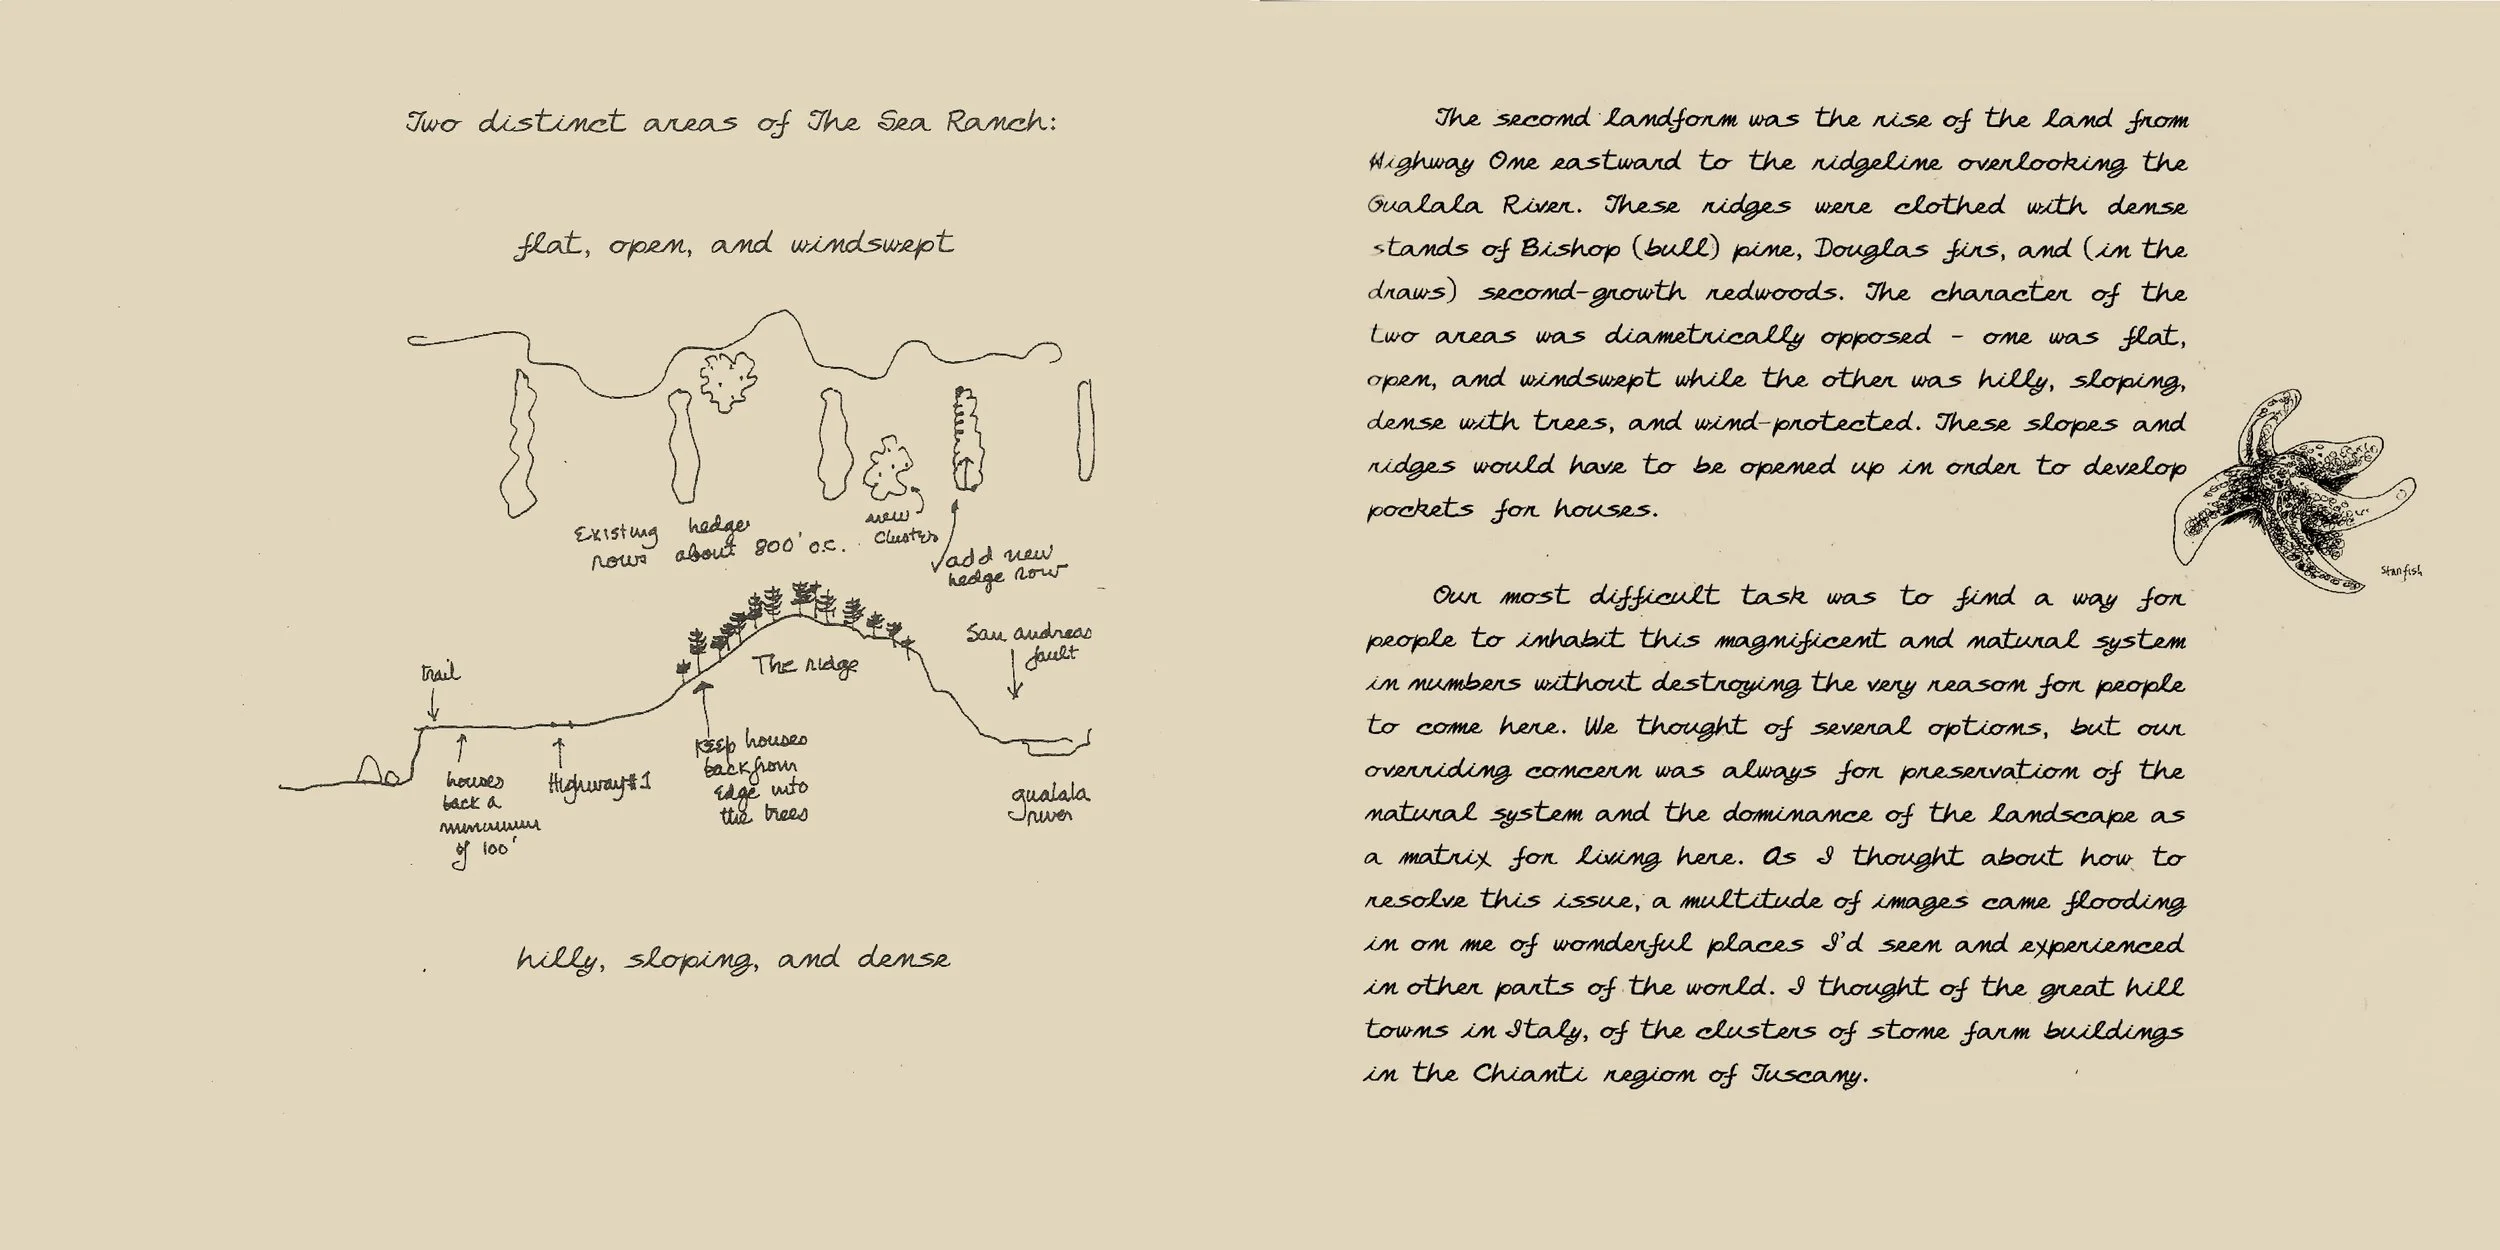 Two distinct areas of The Sea Ranch:
flat, open, and windswept
Existing hedge
rows about 800' o.c.
new
cluster
add new
hedge row
San andreas
fault
The ridge
trail
houses
back a
minimum
of 100'
Highway #1
Keep houses
back from
edge into
the trees
gualala
river
hilly, sloping, and dense
The second landform was the rise of the land from
Highway One eastward to the ridgeline overlooking the
Gualala River. These ridges were clothed with dense
stands of Bishop (bull) pine, Douglas firs, and (in the
draws) second-growth redwoods. The character of the
two areas was diametrically opposed - one was flat,
open, and windswept while the other was hilly, sloping,
dense with trees, and wind-protected. These slopes and
ridges would have to be opened up in order to develop
pockets for houses.
Starfish
Our most difficult task was to find a way for
people to inhabit this magnificent and natural system
in numbers without destroying the very reason for people
to come here. We thought of several options, but our
overriding concern was always for preservation of the
natural system and the dominance of the landscape as
a matrix for living here. As I thought about how to
resolve this issue, a multitude of images came flooding
in on me of wonderful places I'd seen and experienced
in other parts of the world. I thought of the great hill
towns in Italy, of the clusters of stone farm buildings
in the Chianti region of Tuscany.